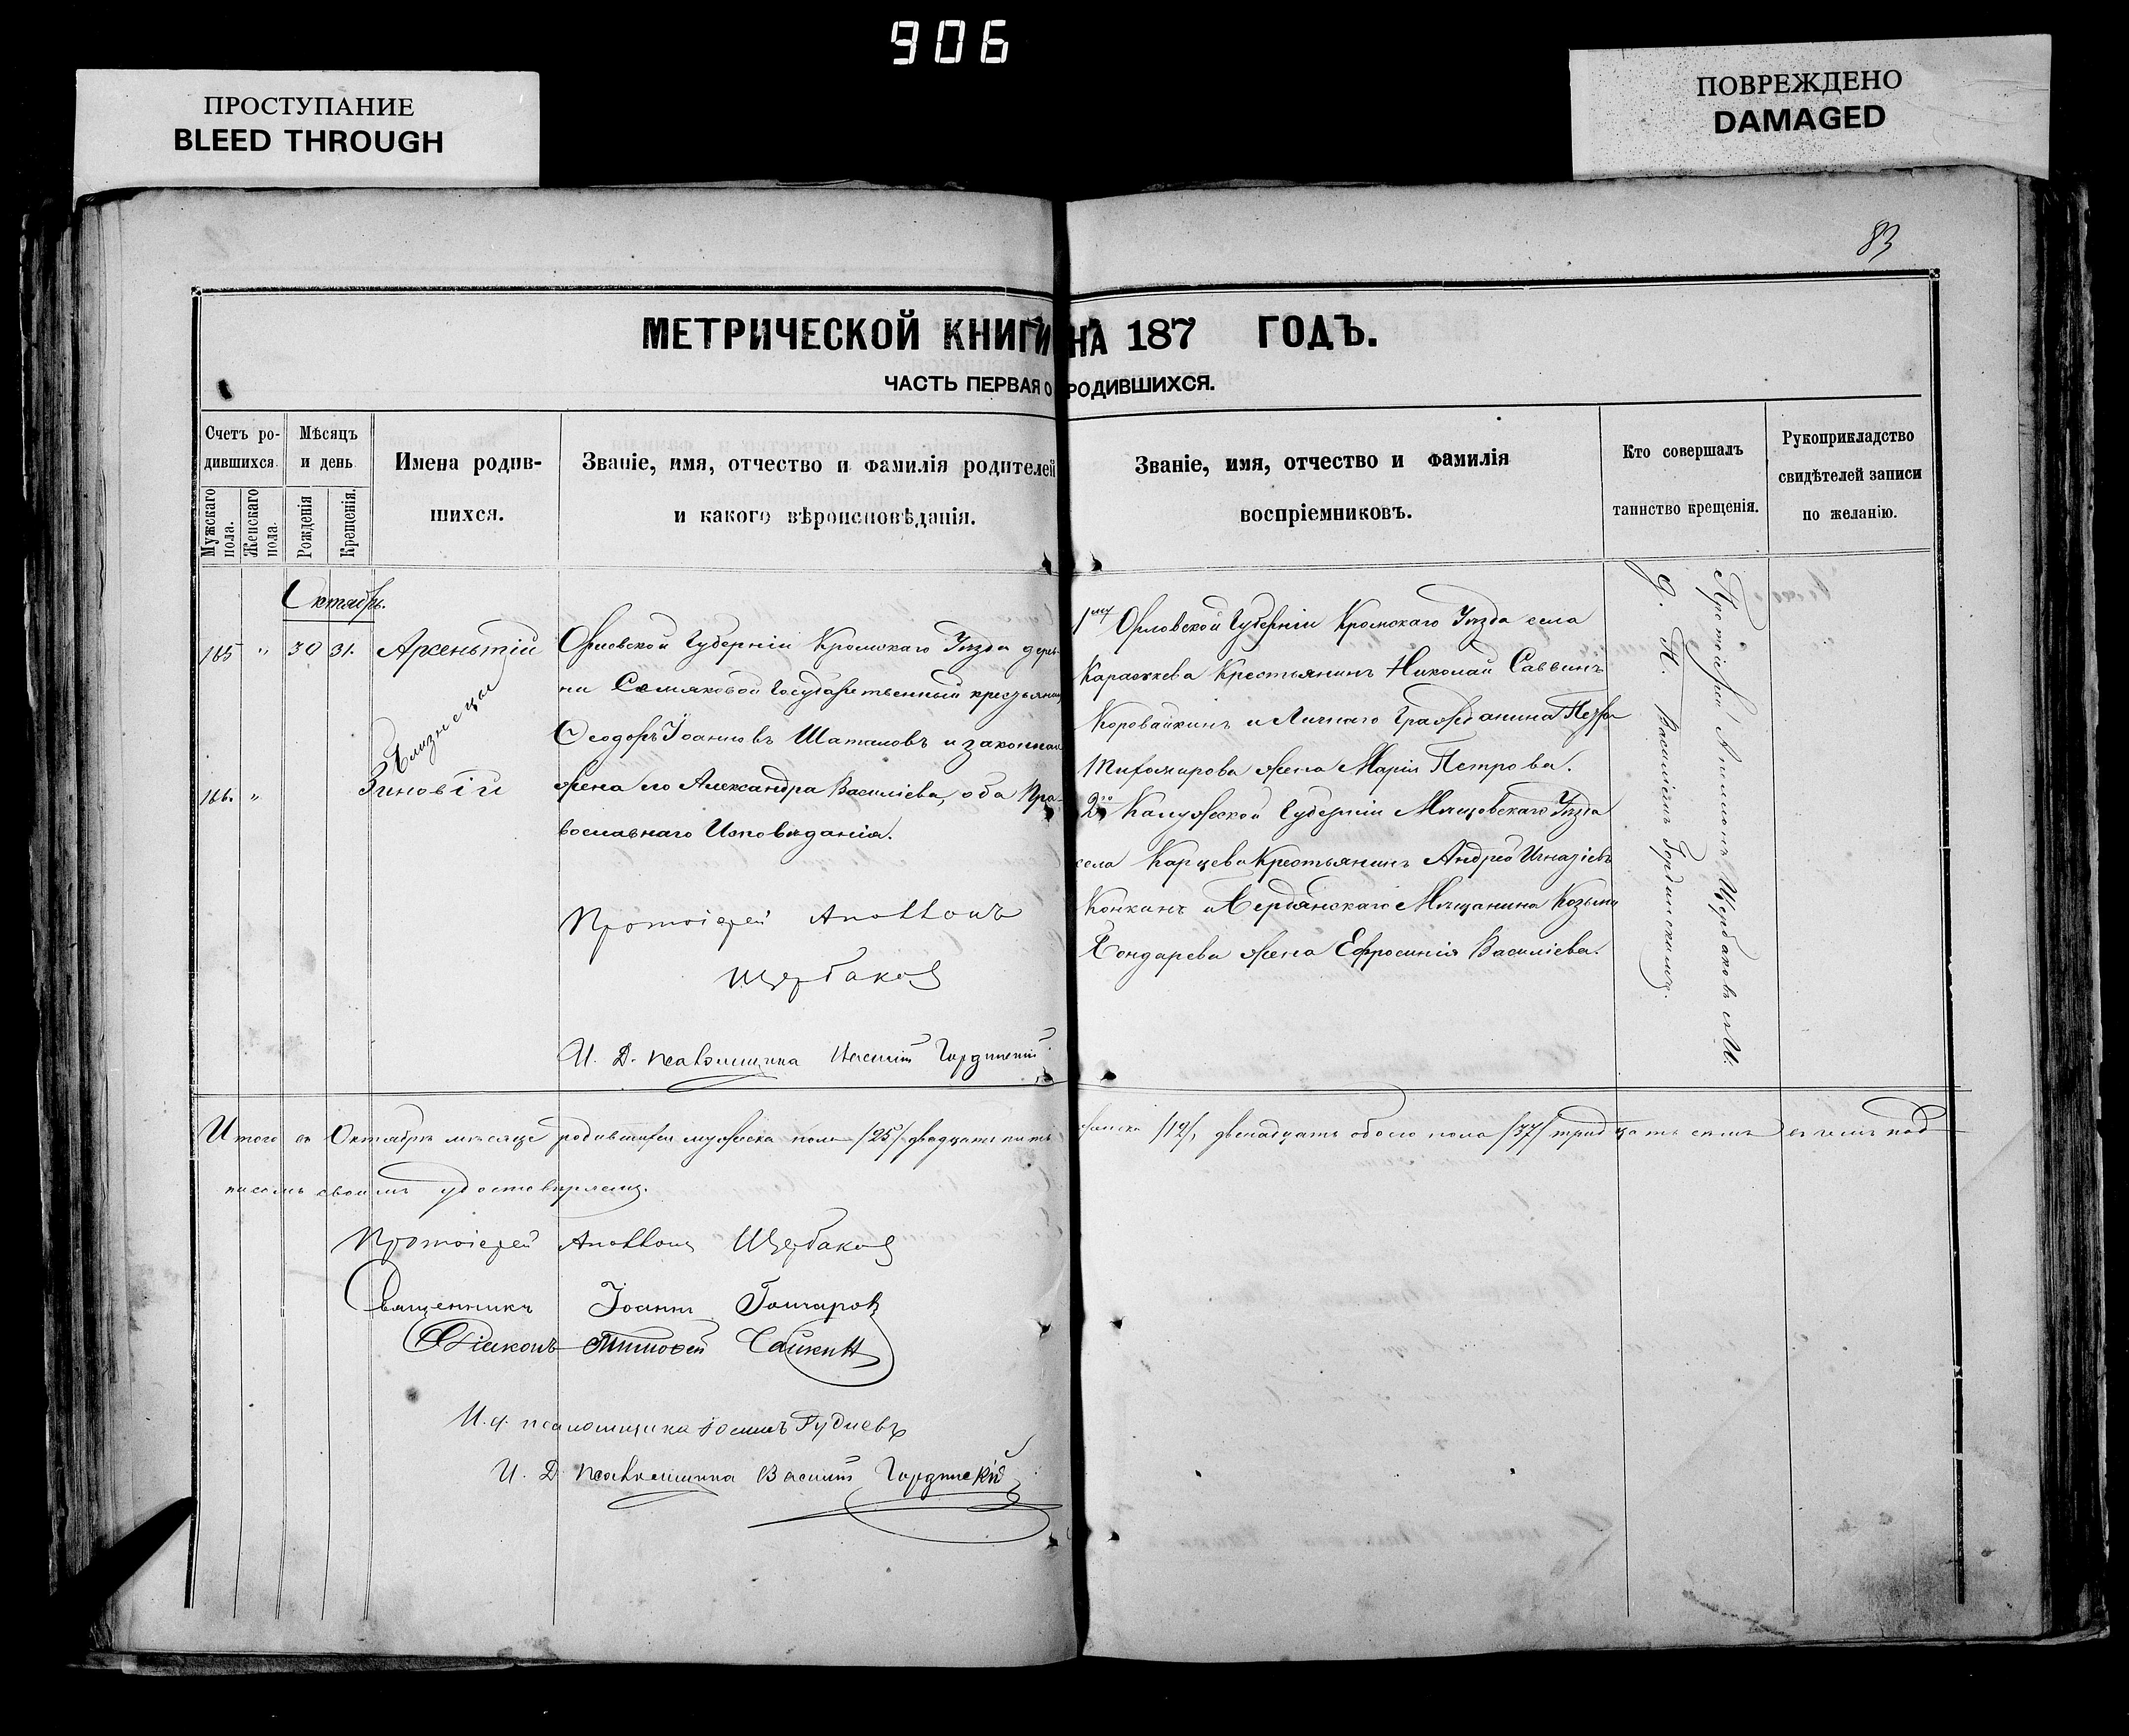 906
ПРОСТУПАНИЕ
BLEED THROUGH
ПОВРЕЖДЕНО
DAMAGED
83
МЕТРИЧЕСКОЙ КНИГИ НА 187 ГОДЪ.
ЧАСТЬ ПЕРВАЯ О РОДИВШИХСЯ.
Счетъ ро-
дившихся.
Мужскаго пола.
Женскаго пола.
Мѣсяцъ
и день
Рожденія
Крещенія.
Имена родив-
шихся.
Званіе, имя, отчество и фамилія родителей
и какого вѣроисповѣданія.
Званіе, имя, отчество и фамилія
воспріемниковъ.
Кто совершалъ
таинство крещенія.
Рукоприкладство
свидѣтелей записи
по желанію.
Октябрь.
165 " 30 31. Арсеньтій
Близнецы
166. " Зиновій
Орловской Губерніи Кромскаго Уѣзда дерев-
ни Семяковой Государственный крестьянинъ
Ѳеодоръ Іоанновъ Шаталовъ и законная
жена его Александра Василіева, оба Пра-
вославнаго Исповѣданія.
Протоіерей Аполлонъ
Щербаковъ
И. Д. псаломщика Василій Гординскій
1му Орловской Губерніи Кромскаго Уѣзда села
Крестьянинъ Николай Саввинъ
Коровайкинъ и Личнаго Гражданина Петра
Тихомирова жена Марія Петрова.
2й Калужской Губерніи Мещовскаго Уѣзда
села Карцева Крестьянинъ Андрей Игнатіевъ
Конкинъ и Бердянскаго Мѣщанина Козьмы
Бондарева жена Ефросинія Василіева.
Протоіерей Аполлонъ Щербаковъ съ И.
Д. П. Василіемъ Гординскимъ.
Итого въ Октябрѣ мѣсяцѣ родившихся мужеска пола /25/ двадцать пять женска /12/, двенадцать обоего пола /37/ тридцать семь въ чемъ под-
писомъ своимъ удостовѣряемъ.
Протоіерей Аполлонъ Щербаковъ
Священникъ Іоаннъ Гончаровъ
Діаконъ Тимофей Сайкин
И. д. псаломщика Іоаннъ Рудневъ
И. Д. псаломщика Василій Гординскій